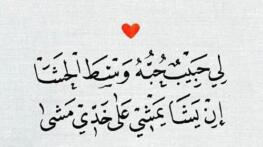 لِي حَبِيبٌ حُبُّهُ وَسْطَ الْحَشَا
إِنْ يَشَا يَمْشِي عَلَى خَدِّي مَشَى